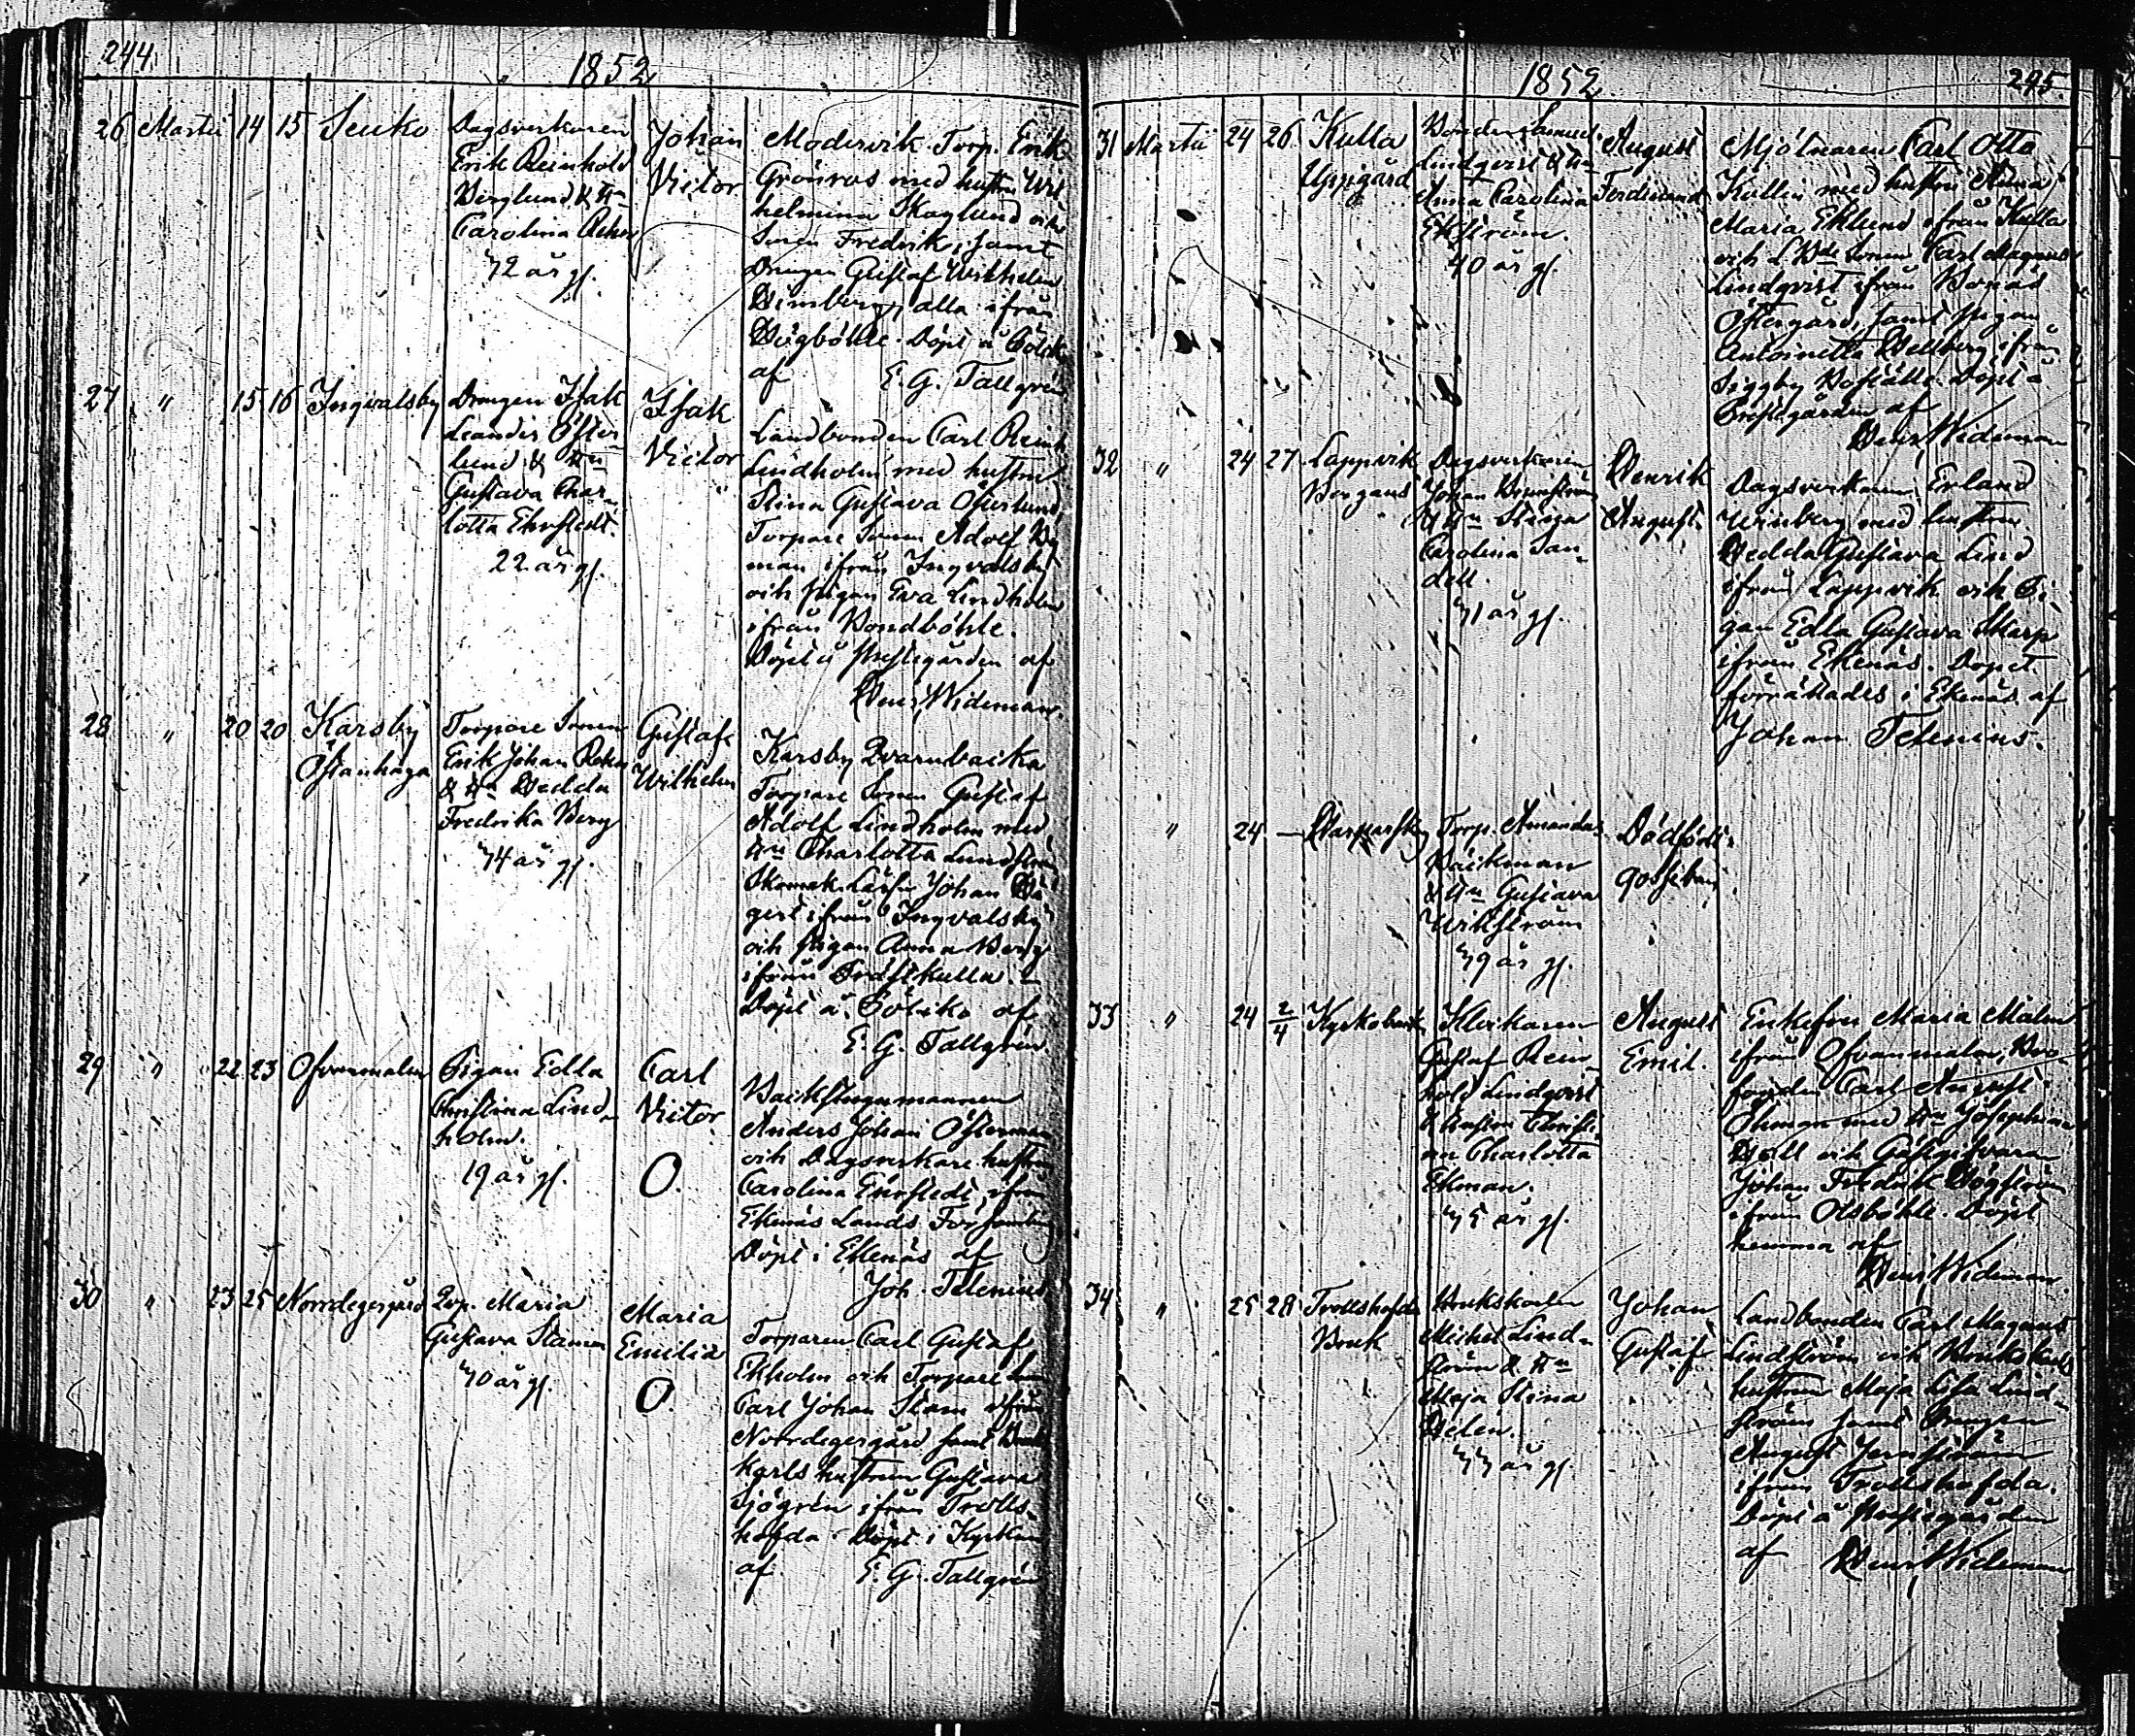 244.
1852
26 Martii 14 15
Dagsverkaren
Erik Reinhold
Berglund & Hu
Carolina
42 år gl.
Johan
Victor
Modervik Torp. Erik
Grönroos med hustru Wil-
helmina Skoglund och
Sonen Fredrik, samt
Drengen Gustaf Wilhelm
alla ifrån
Högböhle. Döpt å
af E. G. Tallgren
27 " 15 16 Ingvalsby
Drengen Isak
Leander Öster
lund & Hu
Gustava Char-
lotta Ehrstedt.
22 år gl.
Isak
Victor
Landbonden Carl Reinh
Lindholm med hustru
Stina Gustava Österlund,
Torpare Sonen Adolf By
man ifrån Ingvalsby
och pigan Eva Lindholm
ifrån Bondböhle.
Döpt å prestegården af
Henr. Wideman.
28 " 20 20 Karsby
Östanhaga
Torpare Sonen
Erik Johan
& Hu Hedda
Fredrika Berg
44 år gl.
Gustaf
Wilhelm
Karsby Qvarnbacka
Torpare Sonen Gustaf
Adolf Lindholm med
Hu Charlotta Lundström
Skomak. Lärl. Johan
ifrån Ingvalsby
och pigan Anna Berg
ifrån Träskkulla.
Döpt å af
E. G. Tallgren.
29 " 22 23 Ofvanmalm
Pigan Edla
Christina Lind-
holm.
19 år gl.
Carl
Victor
O.
Backstugumannen
Anders Johan Österman
och Dagsverkare hustru
Carolina Ehrstedt, ifrån
Ekenäs Lands Församling
Döpt i Ekenäs af
Joh. Telenius
30 " 23 25 Norrdegergård
Qvp. Maria
Gustava Stam
40 år gl.
Maria
Emilia
O.
Torparen Carl Gustaf
Ekholm och Torpare son
Carl Johan Stam ifrån
Norrdegergård samt Bruks
karls hustrun Gustava
Sjögrén ifrån Trolls
hofda. Döpt i Kyrkan
af E. G. Tallgren
1852
245.
31 Martii 24 26 Kulla
Uppgård
Bonden Samuel
Lindqvist & Hu
Anna Carolina
Ekström.
40 år gl.
August
Ferdinand
Mjölnaren Carl Otto
Kullin med hustru Anna
Maria Eklund ifrån Kulla
och Sonen Carl Magnus
Lindqvist ifrån
Östergård, samt pigan
Antoinetta Hellberg ifrån
Seggby Boställe. Döpt å
Prestegården af
Henr. Wideman
32 " 24 27 Lappvik
Dagsverkaren
Johan
& Hu Stina
Carolina San-
dell.
41 år gl.
Henrik
August.
Dagsverkaren Erland
Winberg med hustru
Hedda Gustava Lind
ifrån Lappvik och Pi-
gan Edla Gustava Skarp
ifrån Ekenäs. Dopet
förrättades i Ekenäs af
Johan Telenius.
" 24 —
Torp. Amandus
Bäckman
& Hu Gustava
Wikström
49 år gl.
Dödfödt
gossebarn
33 " 24 2/4 Kyrkobacka
Klockaren
Gustaf Rein-
hold Lindqvist
& hustru Christi-
na Charlotta
Ekman.
45 år gl.
August
Emil.
Enkefru Maria Malm
ifrån Ofvanmalm,
Carl August
Öhman med Hu Josephina
och Gästgifvaren
Johan Fredrik Högström
ifrån Olsböhle. Döpt
hemma af
Henr. Wideman
34 " 25 28 Trollshofda
Bruk
Brukskarlen
Michel Lind-
ström & Hu
Maja Stina
Helén.
44 år gl.
Johan
Gustaf
Landbonden Carl Magnus
Lindström och Brukskarls
hustrun Maja Lisa Lind-
ström samt Drengen
August
ifrån Trollshofda.
Döpt å Prestegården
af Henr. Wideman